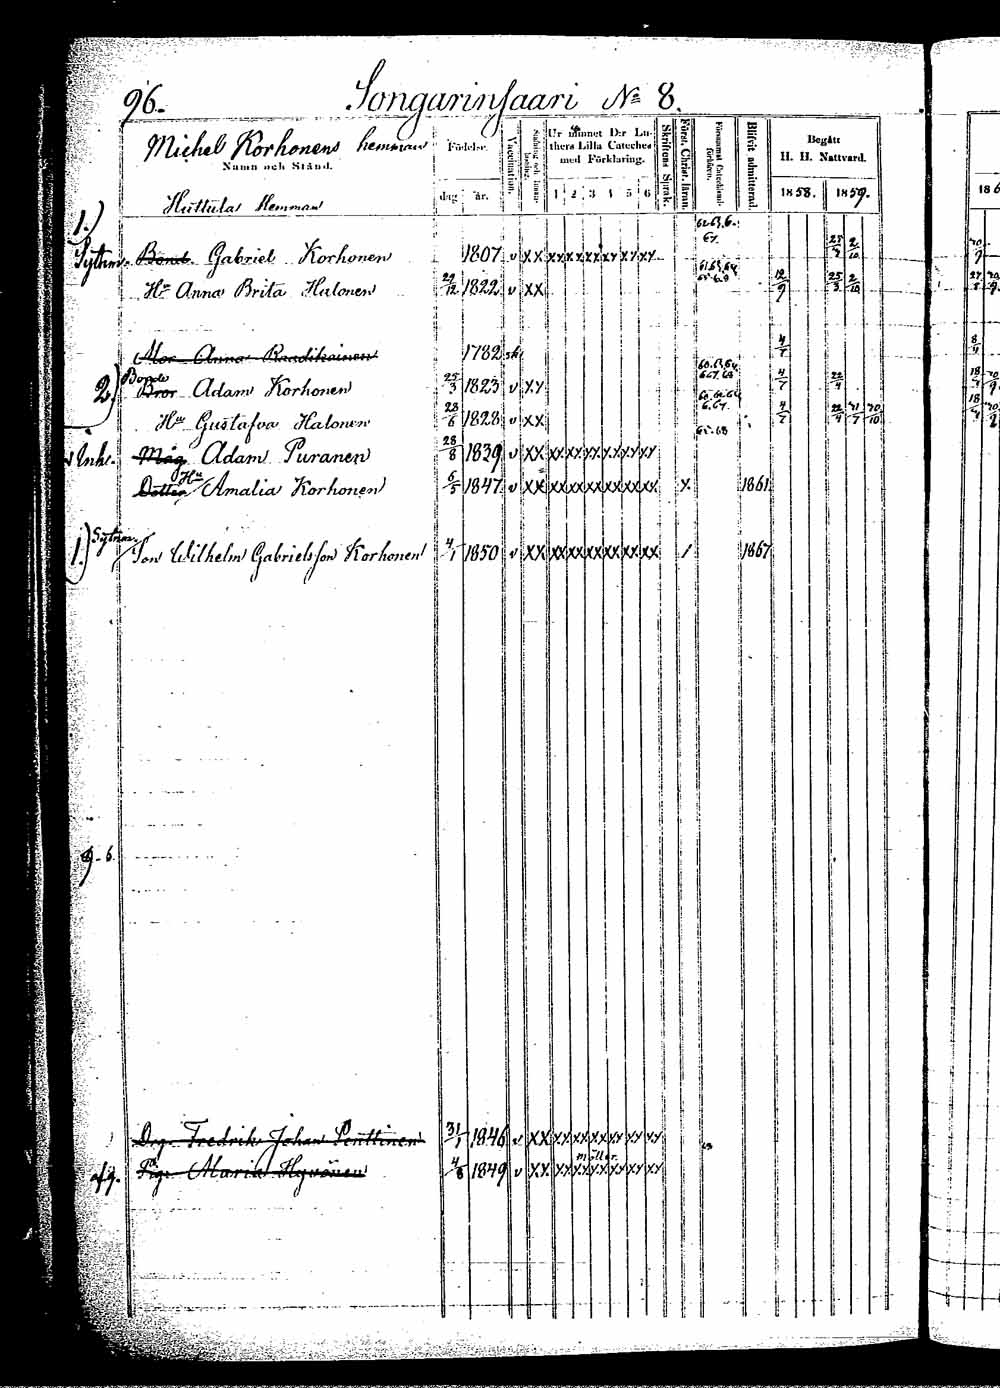 96. Songarinsaari No 8.
Michel Korhonens hemman
Namn och Stånd.
Födelse.
dag år.
Vaccination.
Ur minnet D:r Luthers Lilla Cateches med Förklaring.
1 2 3 4 5 6
Skriftens Språk.
Först. Christ. läran.
Blifvit admitterad.
Begått
H. H. Nattvard.
1858. 1859.
Huttula Hemman
1.)
Sytnm. Bond. Gabriel Korhonen 1807 v XX XX XX XX XX XX XX
Hu Anna Brita Halonen 29/12 1822 v XX 12/9 25/3 2/10
Mor Anna Raadikainen 1782 4/7
2.) Bonde
Bror Adam Korhonen 25/3 1823 v XX 4/7 22/4
Hu Gustafva Halonen 28/6 1828 v XX 4/7 22/4
Inh. Måg Adam Puranen 28/8 1839 v XX XX XX XX XX XX XX
Dotter Hu Amalia Korhonen 6/5 1847 v XX XX XX XX XX XX XX X 1861
1.) Sytnm.
Son Wilhelm Gabrielsson Korhonen 4/1 1850 v XX XX XX XX XX XX XX / 1867
Drg. Fredrik Johan Penttinen 31/1 1846 v XX XX XX XX XX XX XX
afg. Pig. Maria Hyvönen 4/8 1849 v XX XX XX XX XX XX XX